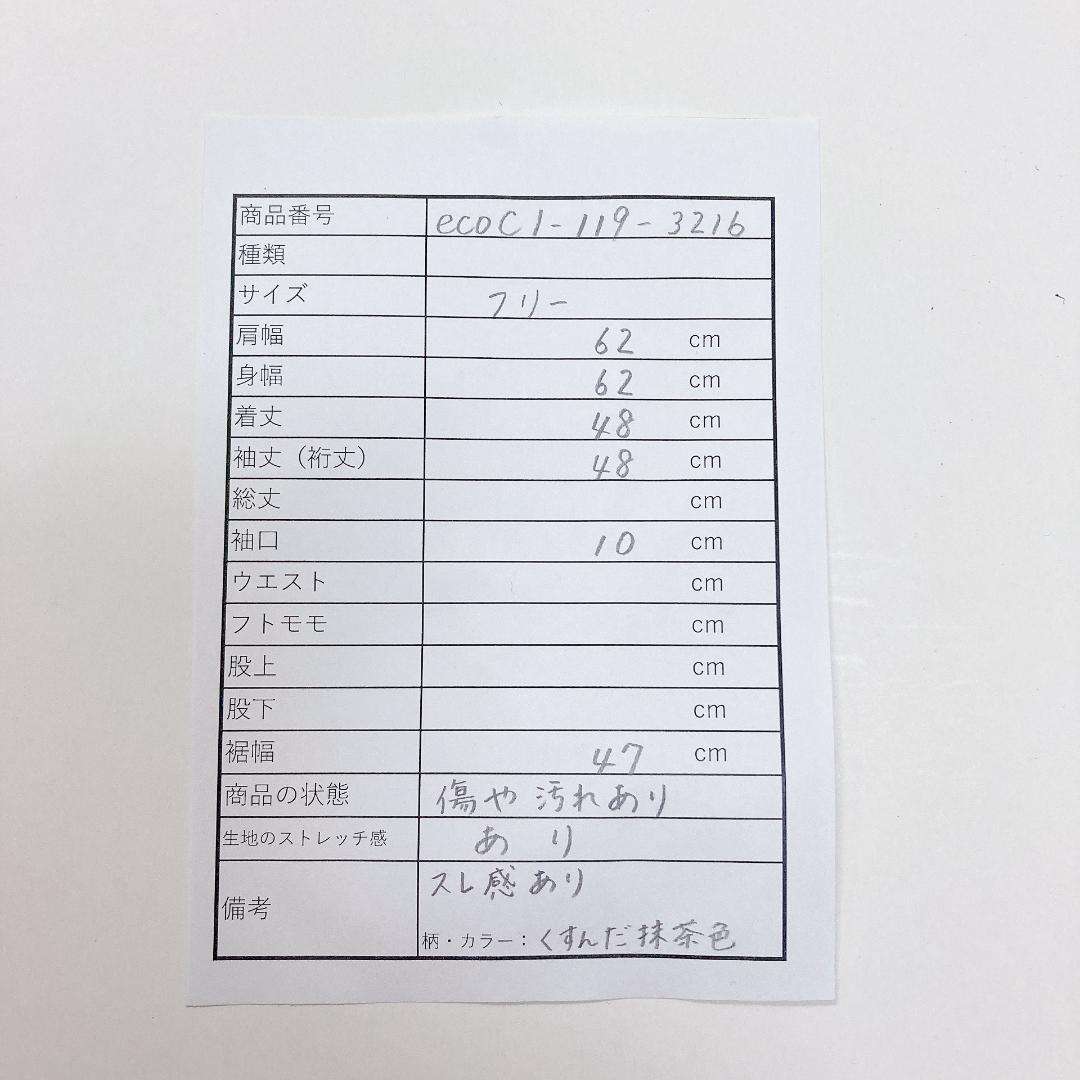 商品番号 ecoC1-119-3216
種類
サイズ フリー
肩幅 62 cm
身幅 62 cm
着丈 48 cm
袖丈（裄丈） 48 cm
総丈 cm
袖口 10 cm
ウエスト cm
フトモモ cm
股上 cm
股下 cm
裾幅 47 cm
商品の状態 傷や汚れあり
生地のストレッチ感 あり
備考 スレ感あり
柄・カラー：くすんだ抹茶色